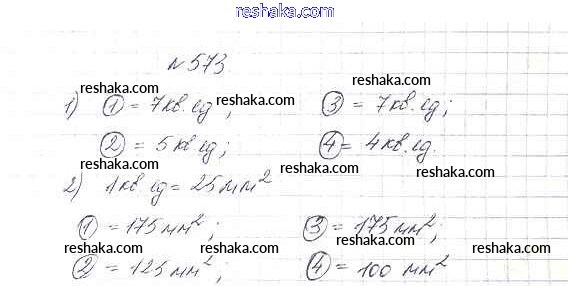 www.reshaka.com
№573.
reshaka.com reshaka.com
1) ① = 7 кв. ед; ③ = 7 кв. ед;
reshaka.com reshaka.com reshaka.com
② = 5 кв. ед; ④ = 4 кв. ед.
reshaka.com reshaka.com
2) 1 кв. ед = 25 мм²
reshaka.com reshaka.com
① = 175 мм²; ③ = 175 мм²;
reshaka.com reshaka.com
② = 125 мм²; ④ = 100 мм²
reshaka.com reshaka.com